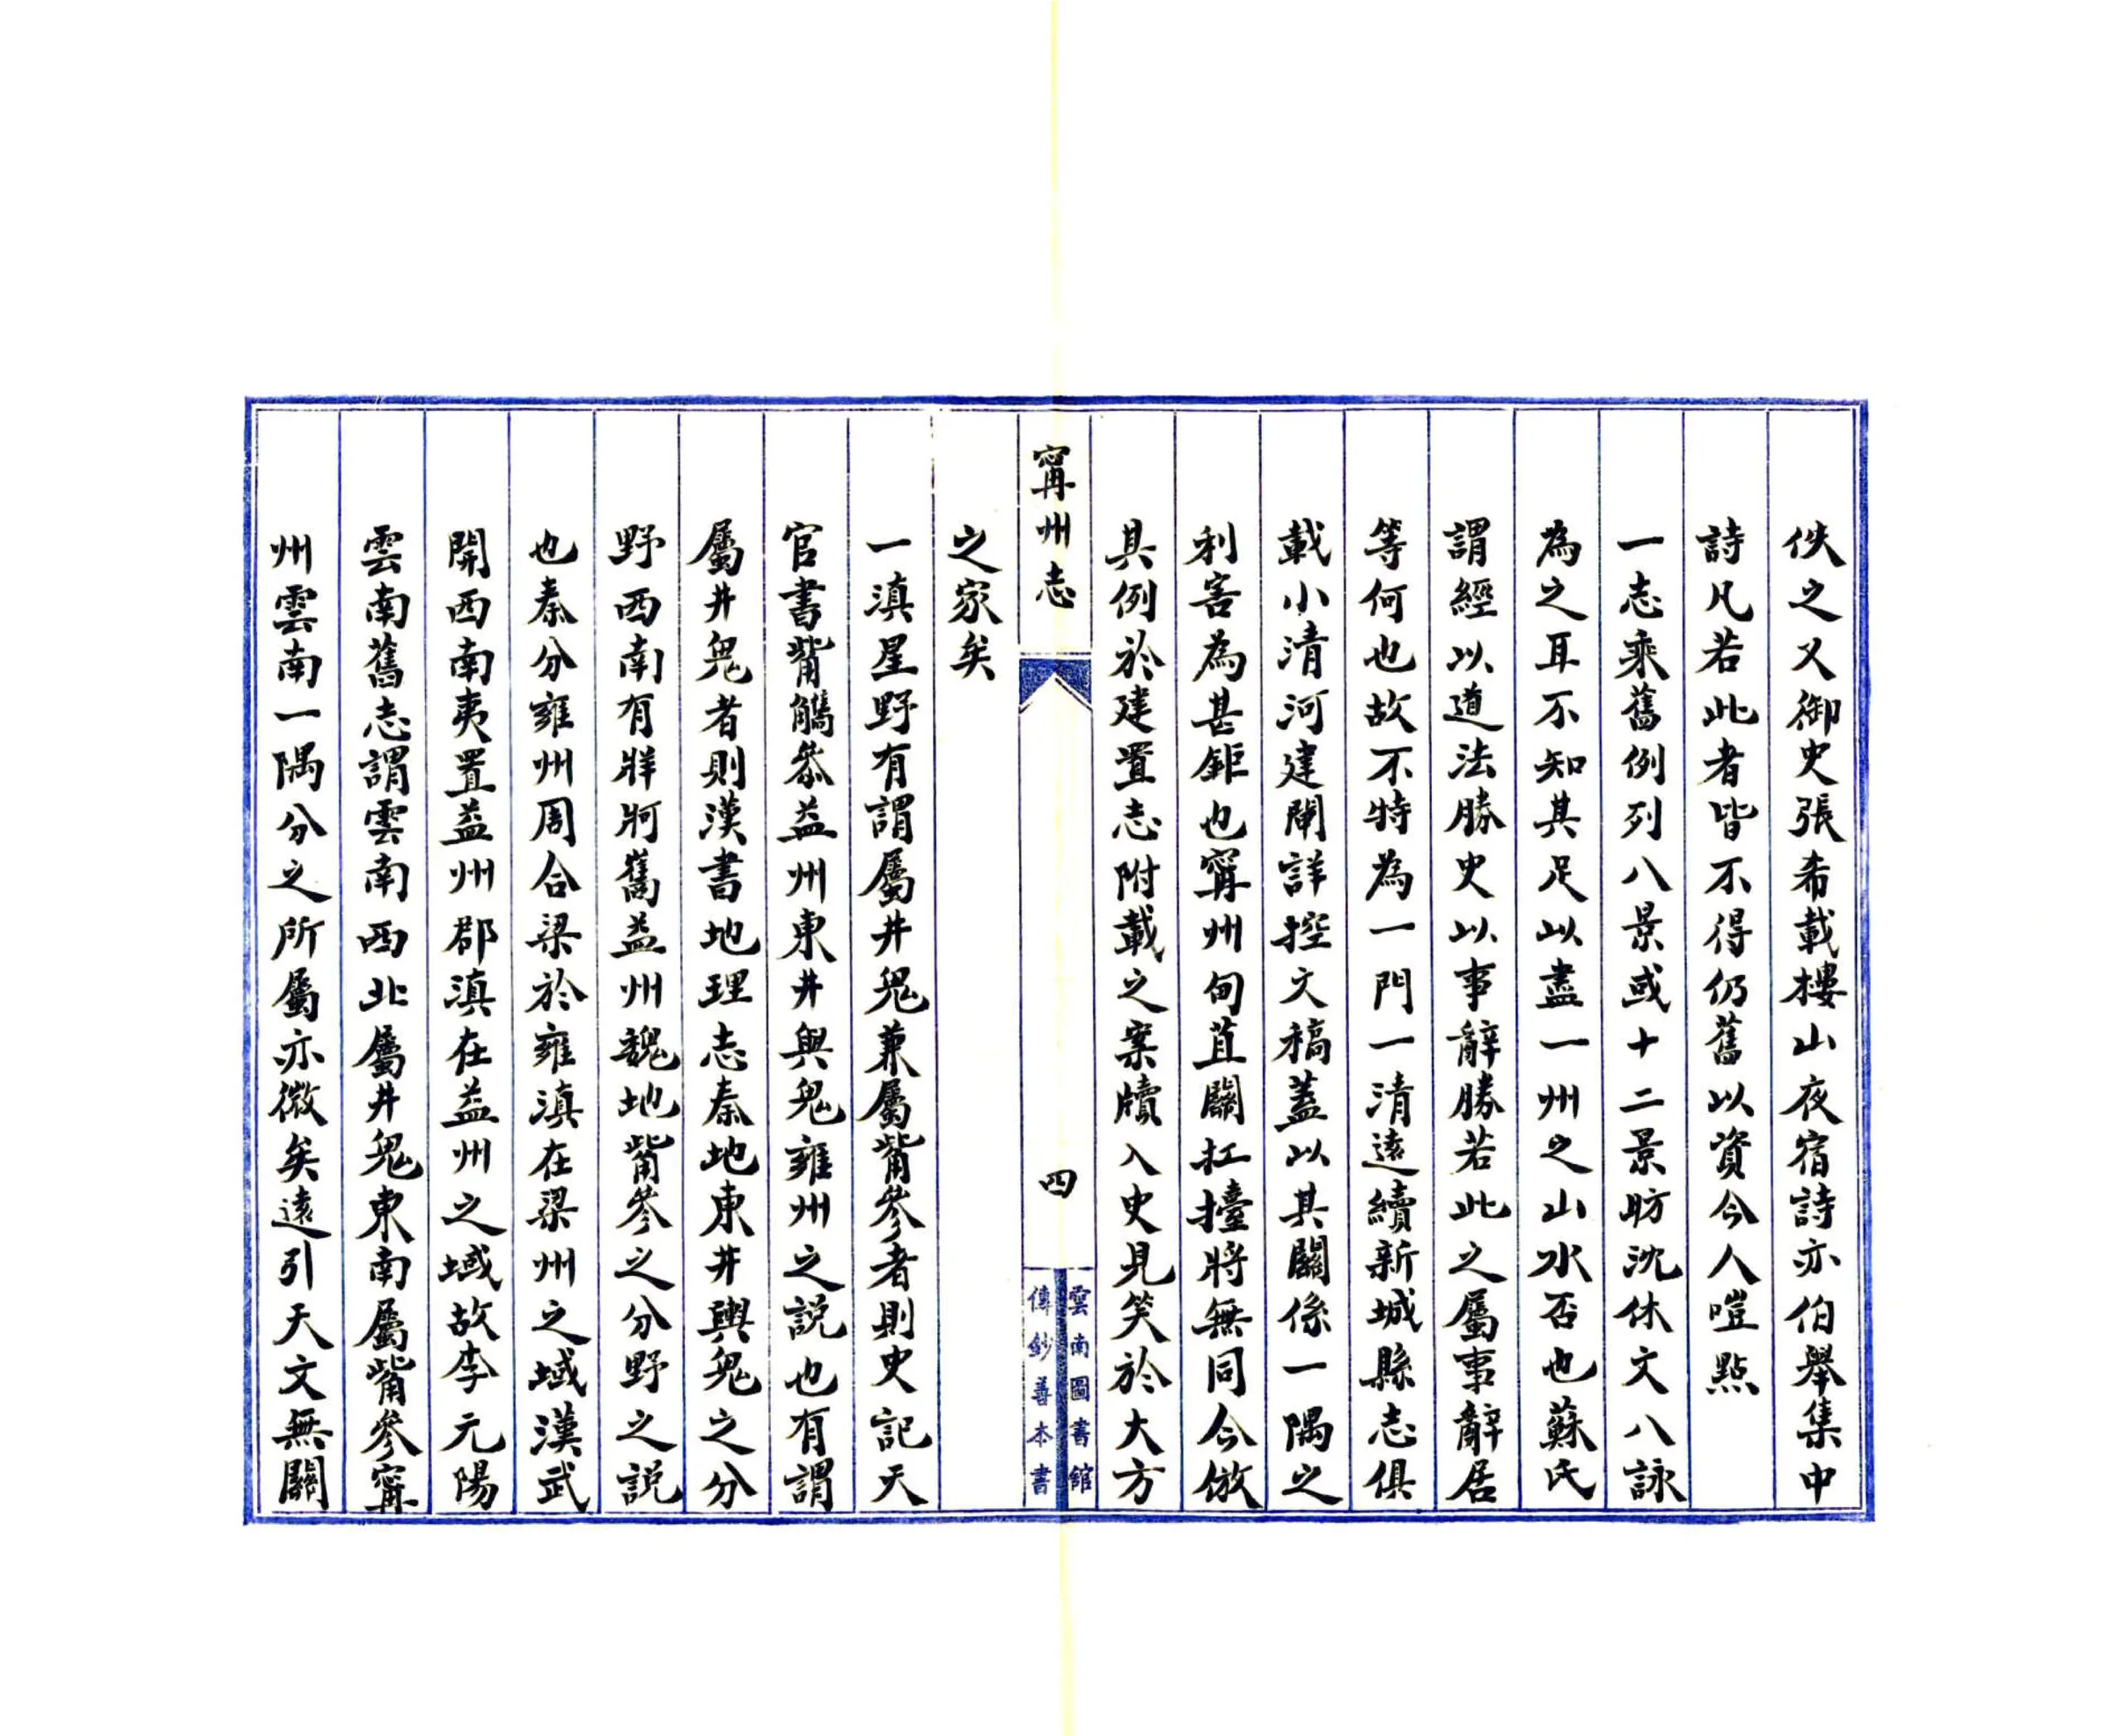 佚之又御史張希載樓山夜宿詩亦伯舉集中
詩凡若此者皆不得仍舊以資今人嗢㸃
一志乘舊例列八景或十二景昉沈休文八詠
為之耳不知其足以盡一州之山水否也蘇氏
謂經以道法勝史以事辭勝若此之屬事辭居
等何也故不特為一門一清遠續新城縣志俱
載小清河建閘詳控文稿蓋以其關係一隅之
利害為甚鉅也甯州甸苴關扛擡將無同今倣
具例於建置志附載之案牘入史見笑於大方
之家矣
甯州志
四
雲南圖書館
傳鈔善本書
一滇星野有謂屬井鬼兼屬觜參者則史記天
官書觜觿叅益州東井與鬼雍州之説也有謂
屬井鬼者則漢書地理志秦地東井輿鬼之分
野西南有牂牁嶲益州魏地觜參之分野之説
也秦分雍州周合梁於雍滇在梁州之域漢武
開西南夷置益州郡滇在益州之域故李元陽
雲南舊志謂雲南西北屬井鬼東南屬觜參甯
州雲南一隅分之所屬亦微矣遠引天文無關